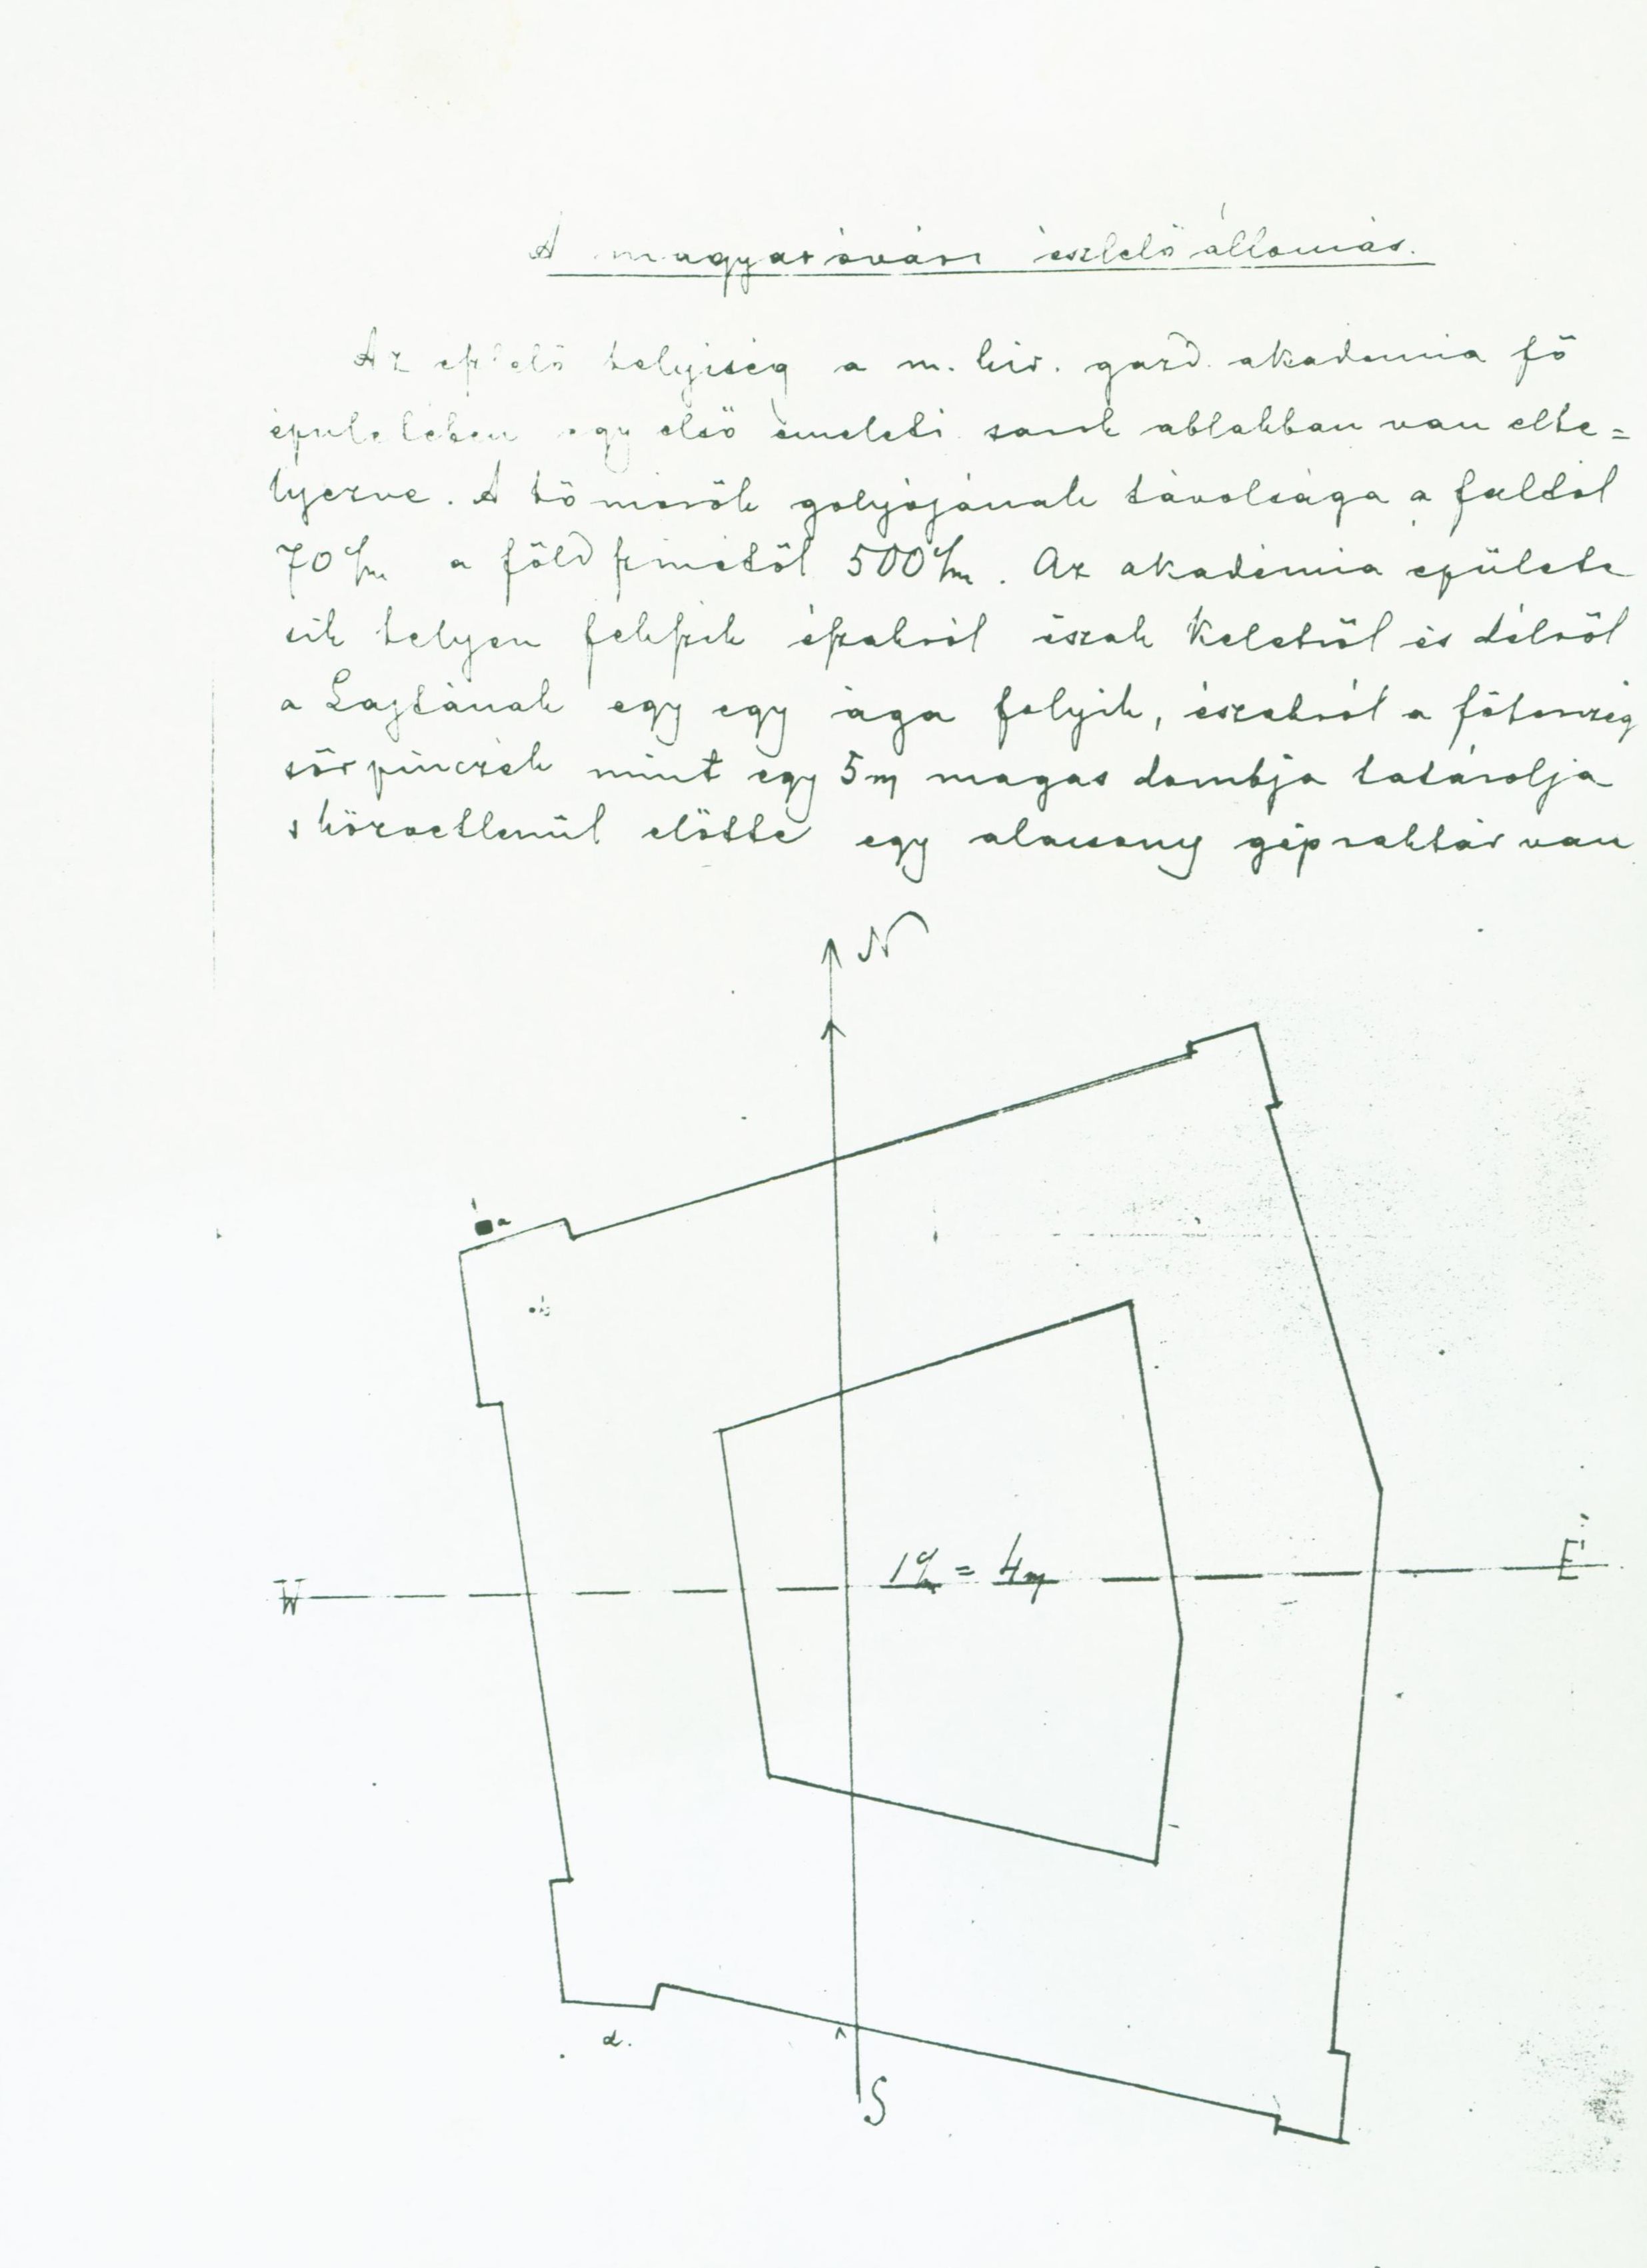 A magyaróvári észlelő állomás.
Az észlelő helyiség a m. kir. gazd. akademia fő
épületében egy első emeleti sarok ablakban van elhe=
lyezve. A hőmérők golyójának távolsága a faltól
70 c/m a föld színétől 500 c/m. Az akadémia épülete
sik helyen fekszik északról észak keletről és délről
a Lajtának egy egy ága folyik, északról a főherczeg
sör pinczék mint egy 5m magas dombja határolja
s közvetlenül előtte egy alacsony gépraktár van
N
a
b
W
1 c/m = 4m
E
d.
S